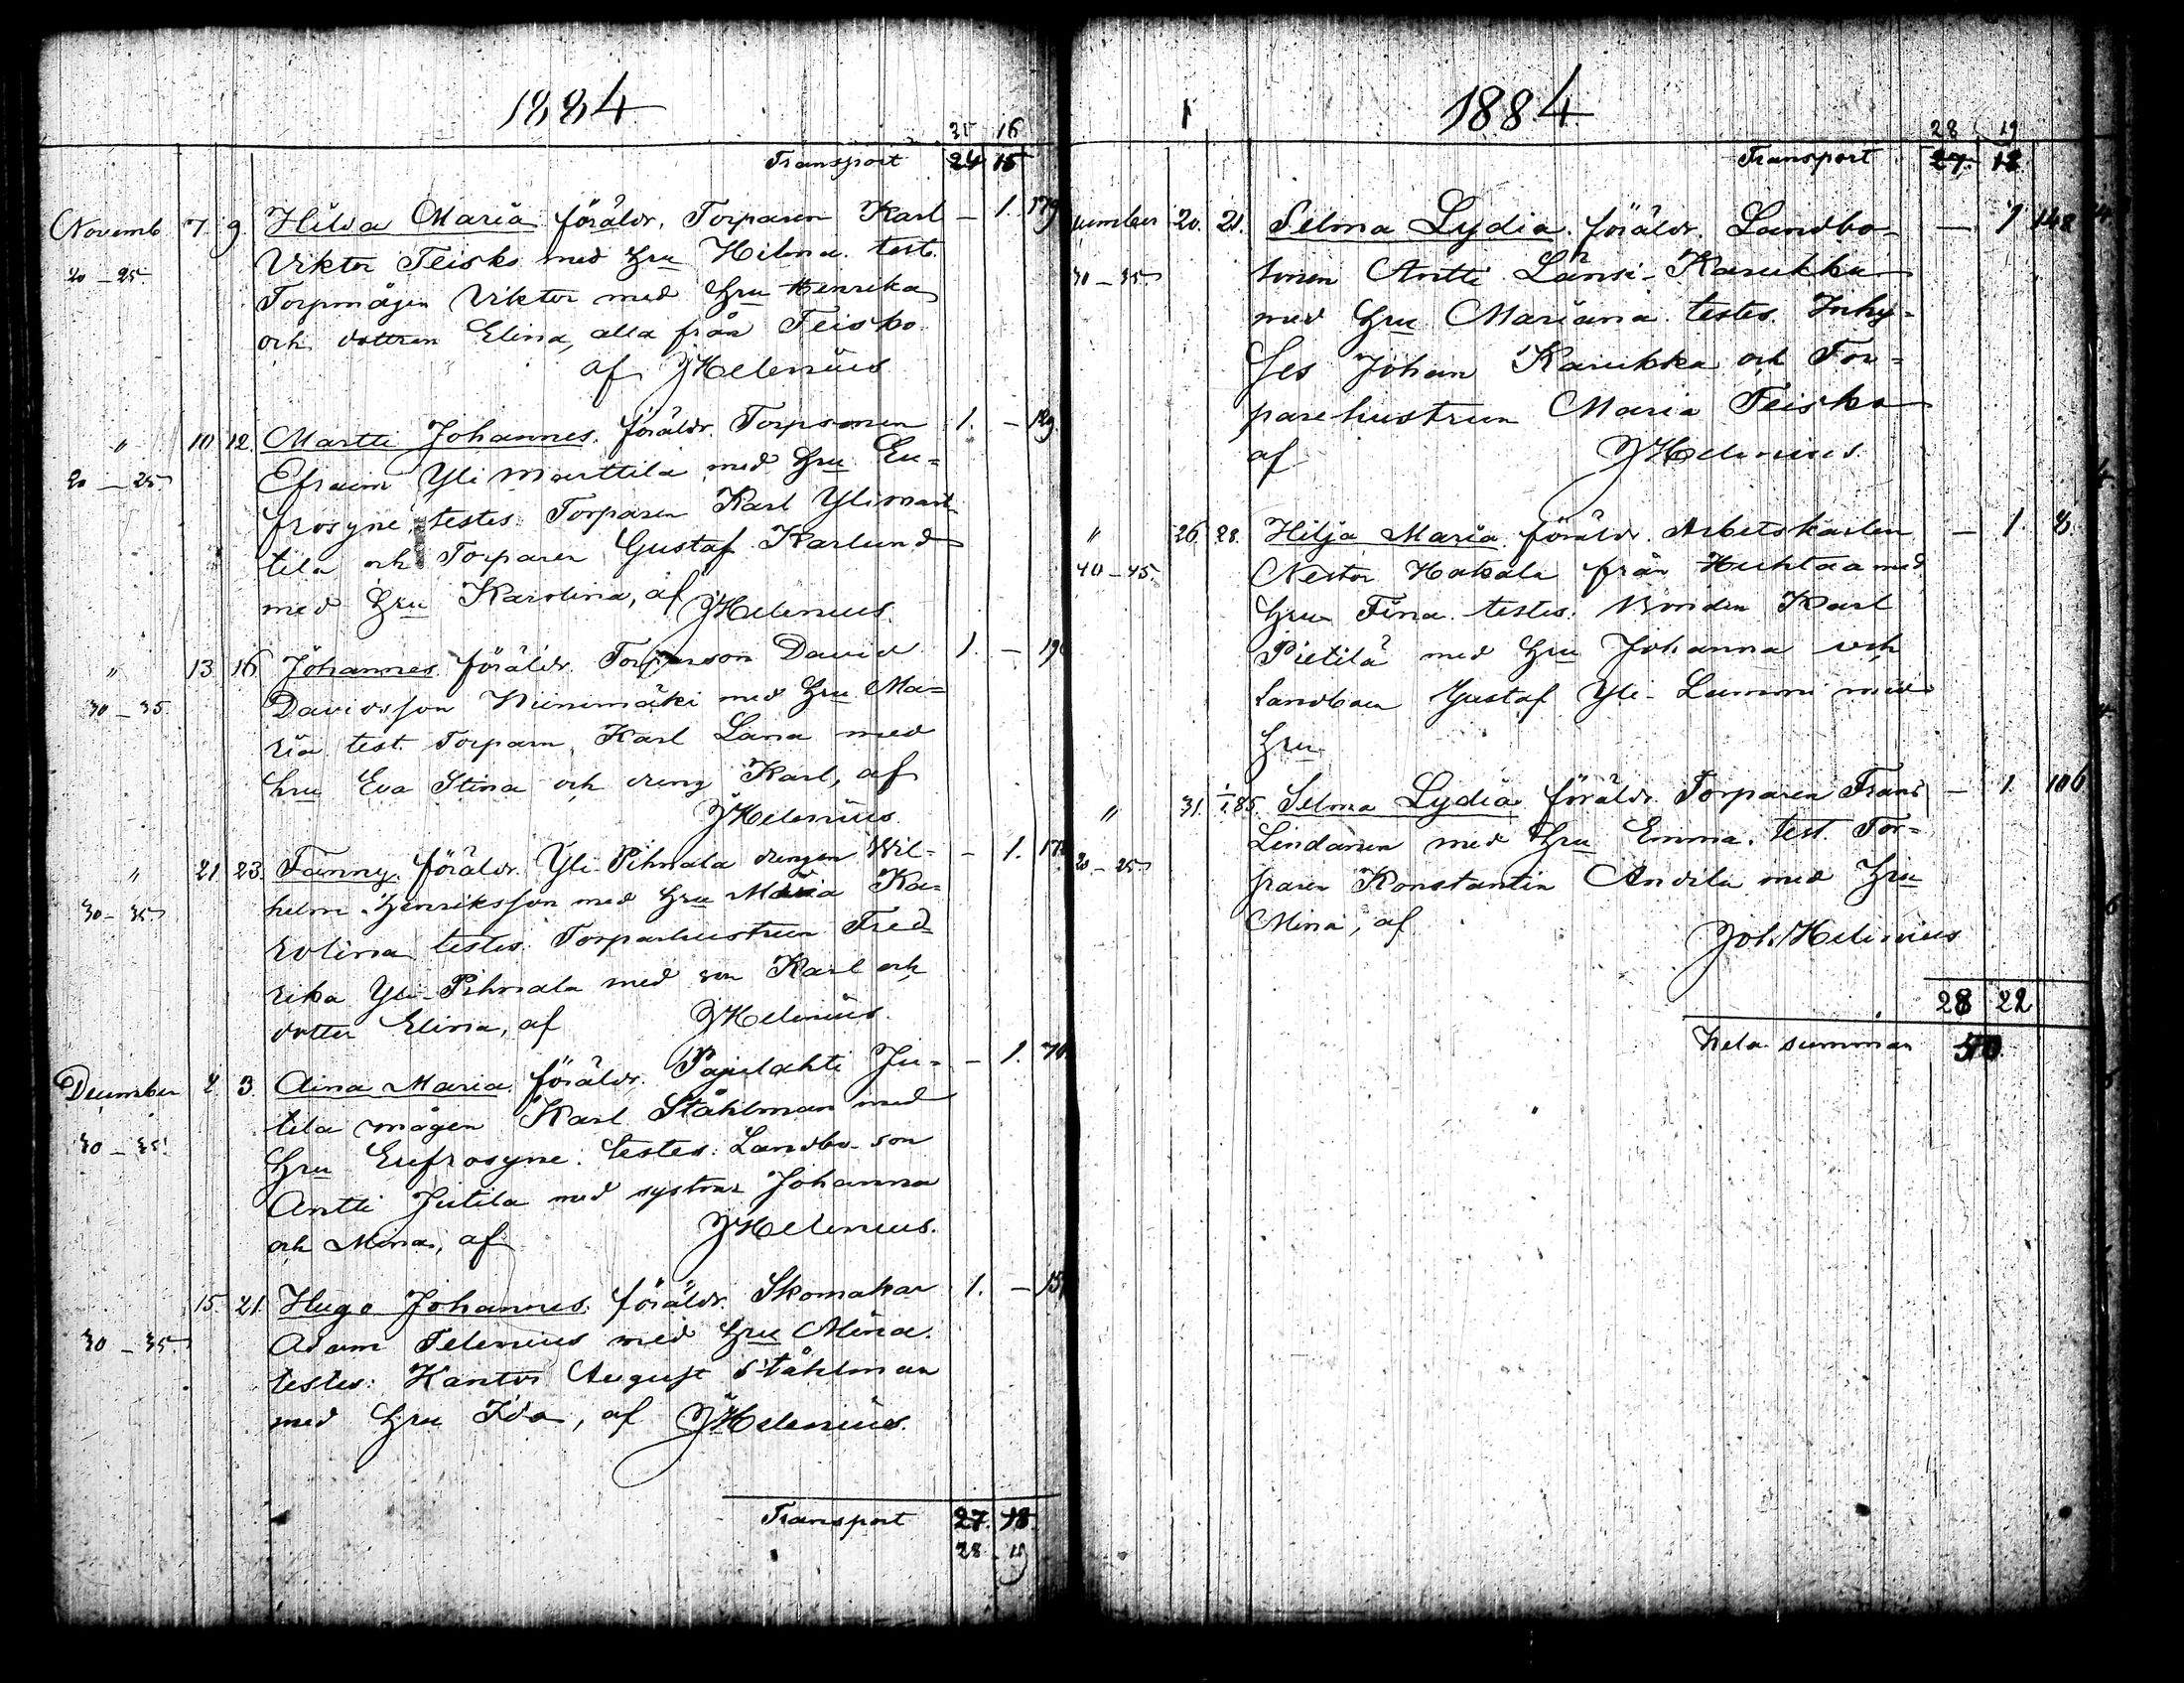 1884
25 16
Transport 24 15
Novemb. 7. 9. Hilda Maria. föräldr. Torparen Karl — 1. 179
20 — 25. Viktor Teisko med hru Hilma. test.
Torpmågen Viktor med hru Henrika
och dottren Elina, alla från Teisko
af JHelenius
" 10 12. Martti Johannes. föräldr. Torpsonen 1. — 129.
20 — 25 Efraim Yli Marttila med hru Eu=
frosyne, testes: Torparen Karl Ylimart
tila och Torparen Gustaf Karlund
med hru Karolina, af JHelenius.
" 13 16 Johannes. föräldr. Torparson David 1. — 19
30 — 35. Davidsson Niinimäki med hru Ma=
ria test. Torparn Karl Lana med
hru Eva Stina och dreng Karl, af
JHelenius.
" 21 23. Fanny. föräldr. Yli-Pihnala drengen Wil= — 1. 17
30 — 35. helm Henriksson med hru Maria Ka=
rolina testes. Torparhustrun Fred
rika Yli-Pihnala med son Karl och
dotter Elina, af JHelenius.
December 2. 3. Aina Maria. föräldr. Pajulahti Ju= — 1. 70
30 — 35. tila mågen Karl Ståhlman med
hru Eufrosyne. testes: Landbo-son
Antti Jutila med systrar Johanna
och Mina, af JHelenius.
15. 21. Hugo Johannes. föräldr. Skomakar 1. — 15
30 — 35. Adam Telenius med hru Mina.
testes: Kantor August Ståhlman
med hru Ida, af JHelenius.
Transport 27. 18.
28 19
1884
28 19
Transport 27. 18
cember 20. 21. Selma Lydia. föräldr. Landbo- — 1 148
30 — 35 sonen Antti Länsi-Karukka
med hru Mariana. testes. Inhy-
ses Johan Karukka och Tor=
parehustrun Maria Teisko
af JHelenius
" 26. 28. Hilja Maria. föräldr. Arbetskarlen — 1. 8.
40 — 45. Nestor Hakala från Huhtaa med
hru Fina. testes: Bonden Karl
Pietilä med hru Johanna och
Landboen Gustaf Yli-Lammi med
hru
" 31. 1/1 85. Selma Lydia. föräldr. Torparen Frans — 1. 106
20 — 25. Lindanen med hru Emma. test. Tor=
paren Konstantin Andila med hru
Mina, af
Joh. Helenius
28 22
Hela summan 50.